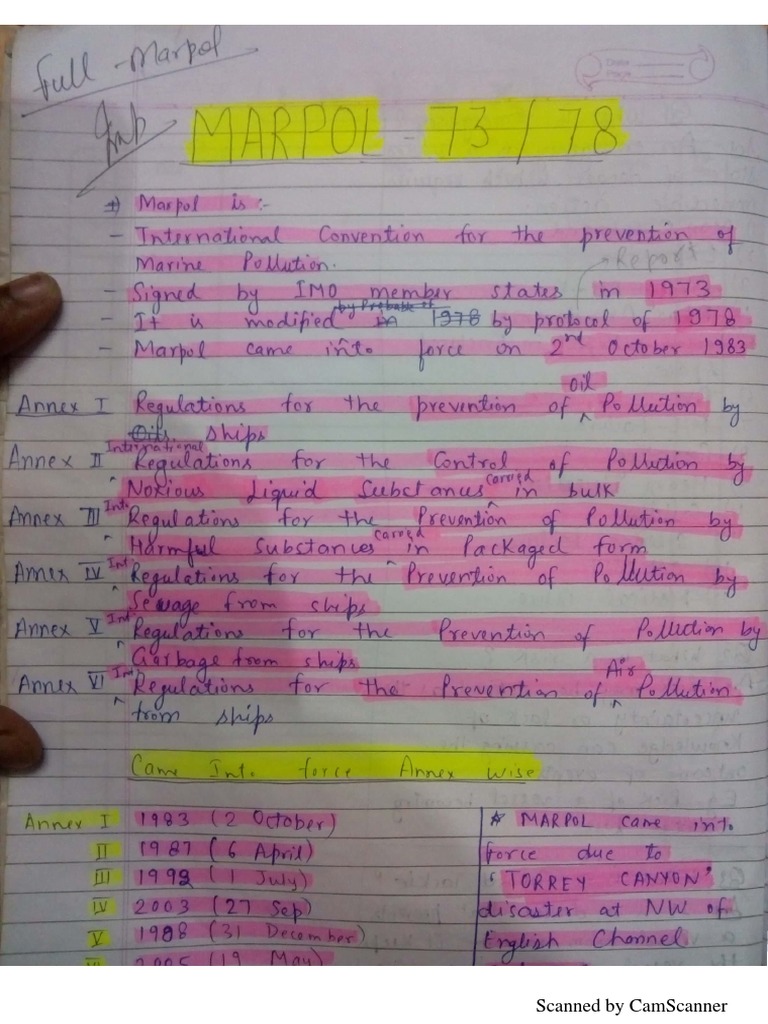 Full - Marpol
Imp
MARPOL - 73 / 78
Marpol is :-
- International Convention for the prevention of
Marine Pollution.
Report
- Signed by IMO member states in 1973
- It is modified by protocol of 1978
- Marpol came into force on 2nd October 1983
Annex I Regulations for the prevention of oil Pollution by
ships
Annex II International Regulations for the Control of Pollution by
Noxious Liquid Substances carried in bulk
Annex III Int. Regulations for the Prevention of Pollution by
Harmful Substances carried in Packaged form
Annex IV Int. Regulations for the Prevention of Pollution by
Sewage from ships
Annex V Int. Regulations for the Prevention of Pollution by
Garbage from ships
Annex VI Int. Regulations for the Prevention of Air Pollution
from ships
Came Int. force Annex Wise
Annex I 1983 (2 October)
II 1987 (6 April)
III 1992 (1 July)
IV 2003 (27 Sep)
V 1988 (31 December)
VI 2005 (19 May)
* MARPOL came into
force due to
'TORREY CANYON'
disaster at NW of
English Channel
Scanned by CamScanner